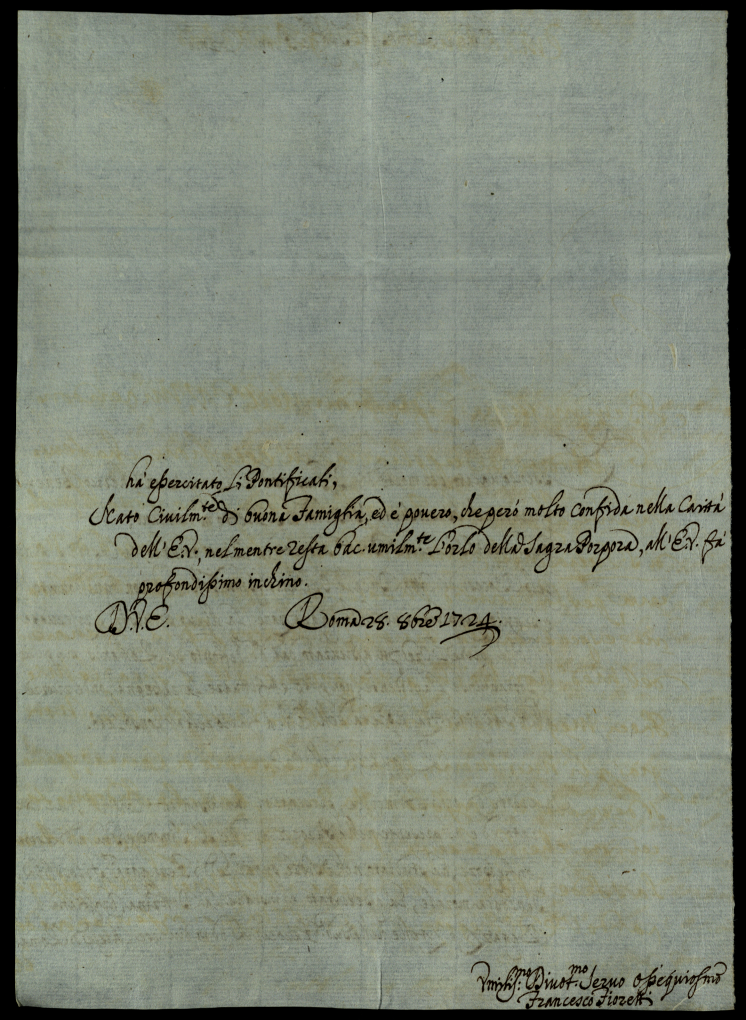 hà esercitato li Pontificati,
Nato Civilm.te di buona Famiglia, ed è povero, che però molto confida nella Carità
dell' E.V., nel mentre resta bac. umilm.te l'orlo della Sagra Porpora, all' E.V. fà
profondissimo inchino.
D. V. E. Roma 28. 8bre 1724.
Umilis.mo Divot.mo Servo Ossequiosmo
Francesco Fioretti